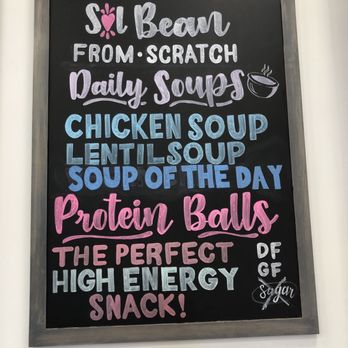 Sol Bean
FROM·SCRATCH
Daily Soups
CHICKEN SOUP
LENTIL SOUP
SOUP OF THE DAY
Protein Balls
THE PERFECT
HIGH ENERGY
SNACK!
DF
GF
Sugar